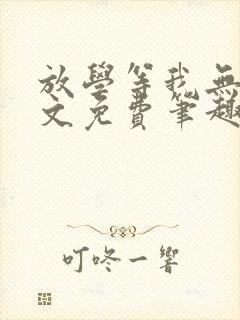 放學等我無
文免費筆趣
叮咚一響